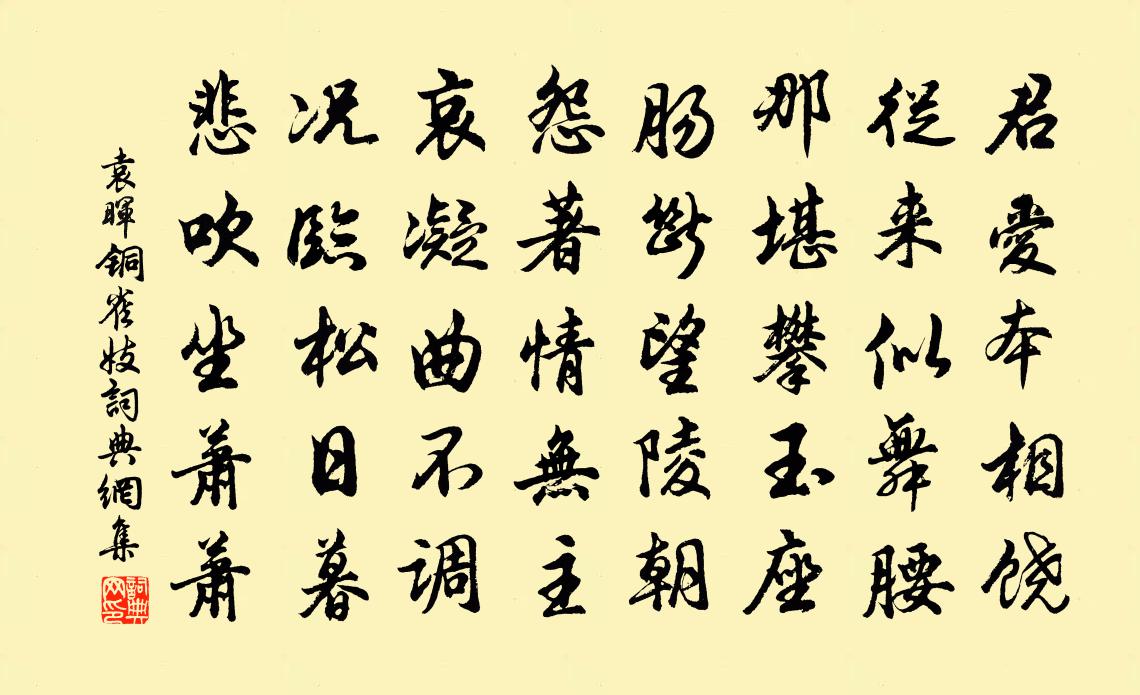 君愛本相饶
從来似舞腰
那堪攀玉座
肠斷望陵朝
怨著情無主
哀凝曲不调
况臨松日暮
悲吹坐蕭蕭
袁暉銅雀妓詞典網集
詞典
网印